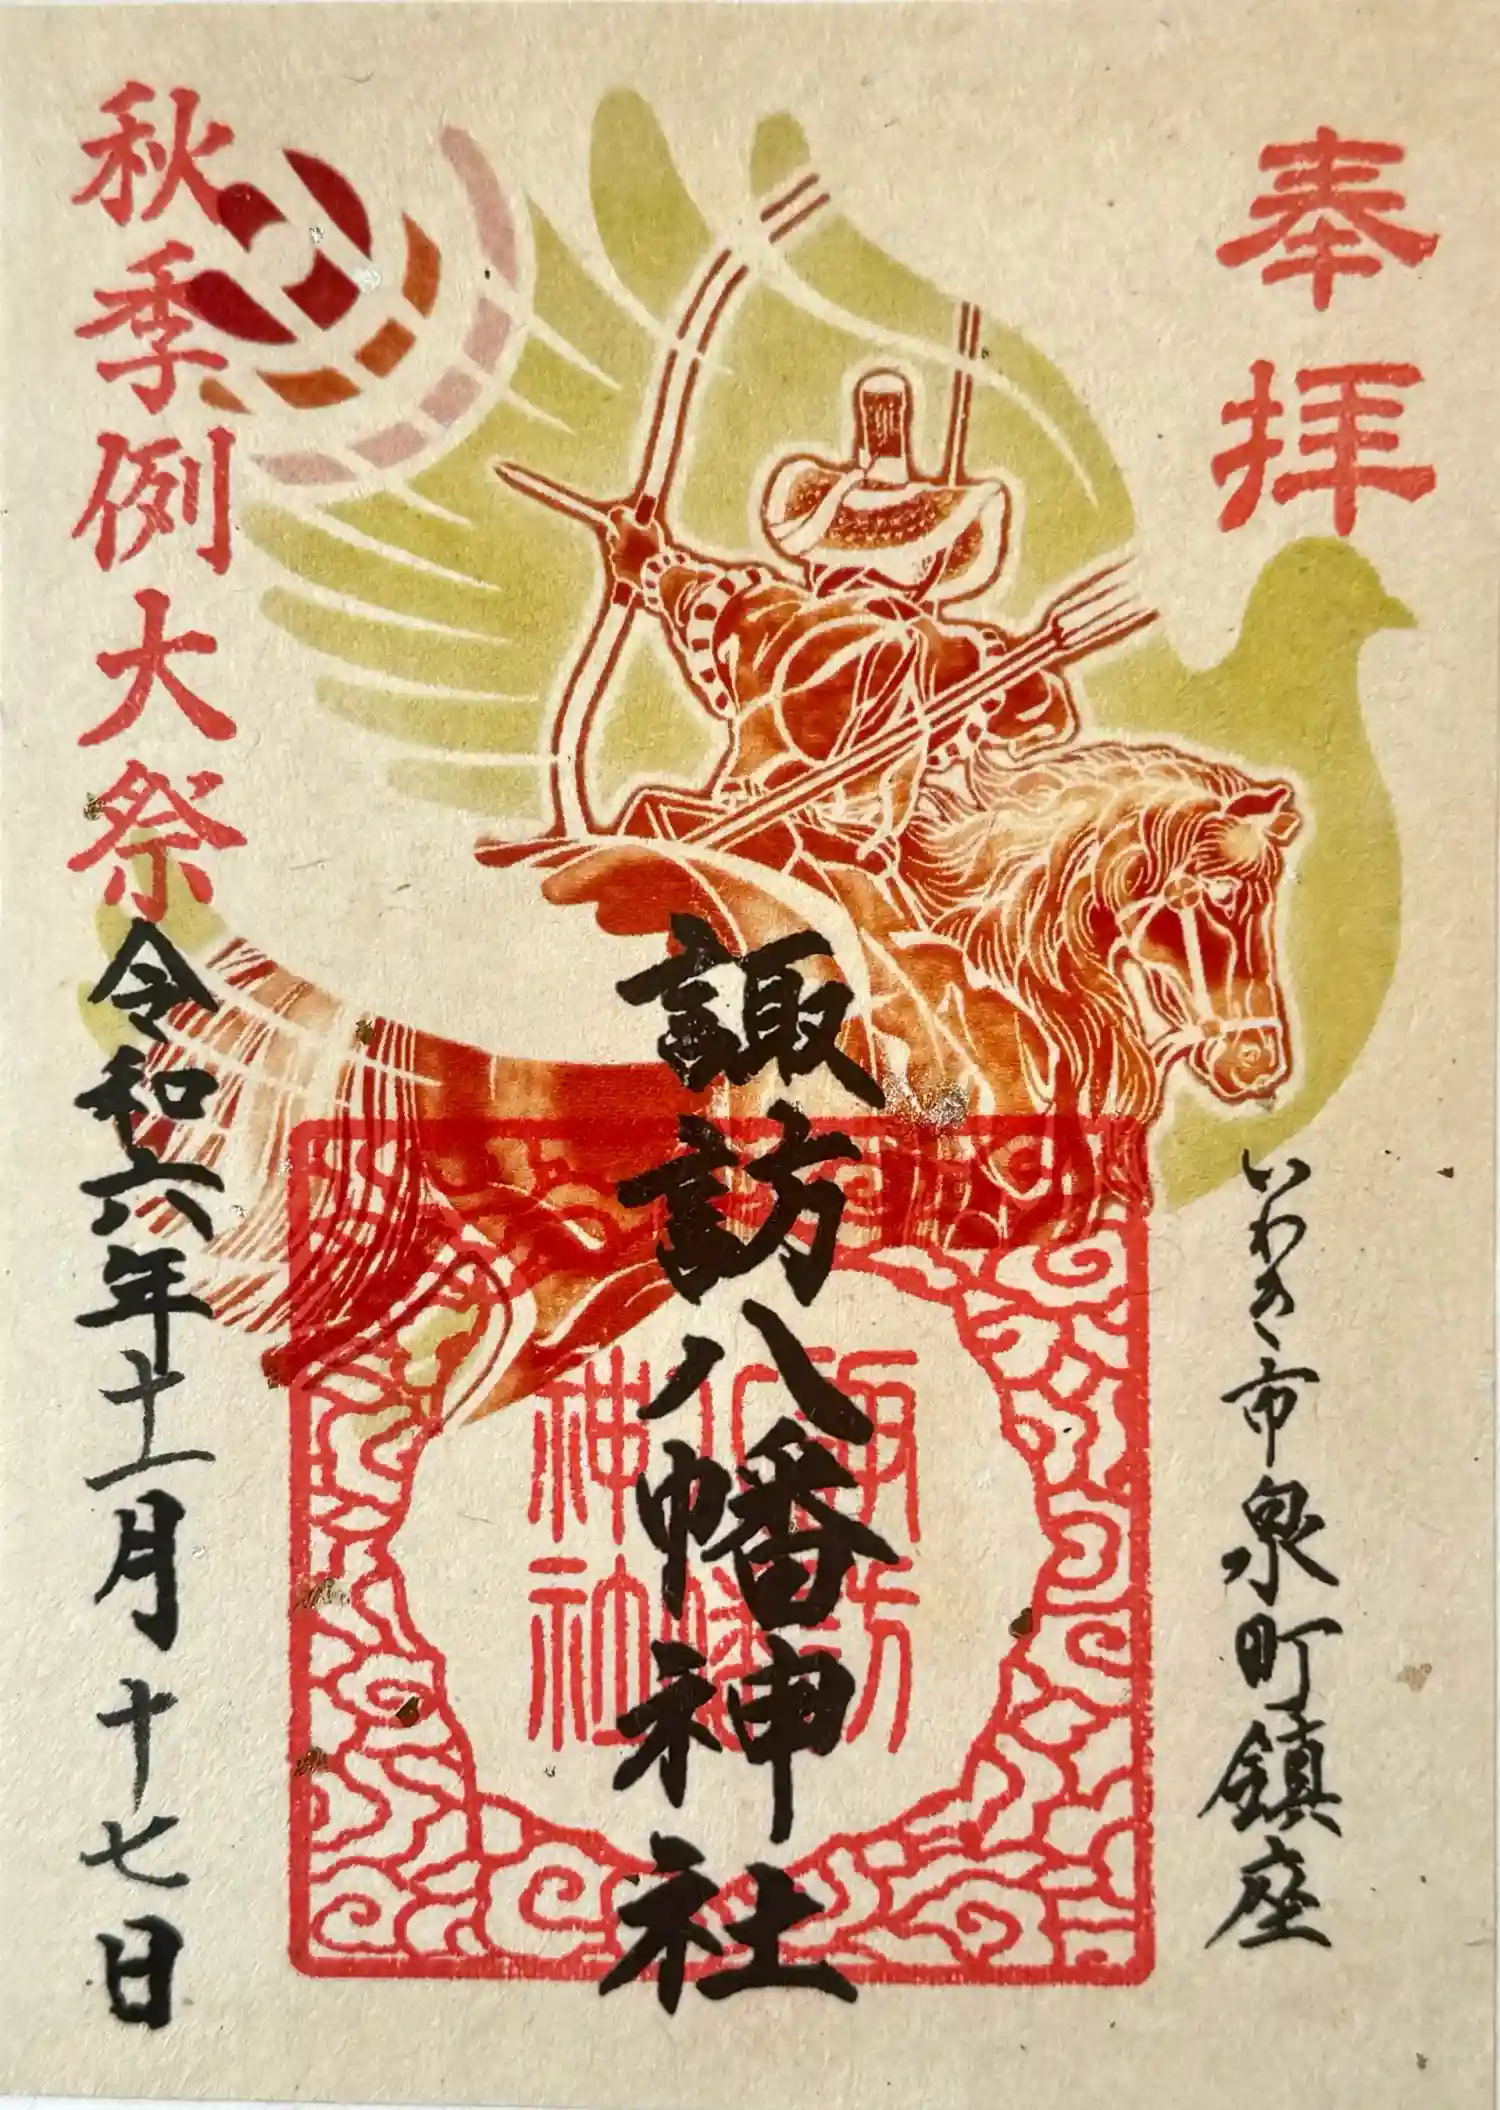 奉拝
いわき市泉町鎮座
諏訪八幡神社
秋季例大祭
令和六年十一月十七日